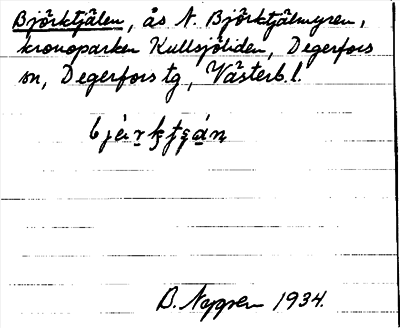 Björktjälen, ås N. Björktjälmyren,
kronoparken Kullsjöliden, Degerfors
sn, Degerfors tg, Västerb. l.
B. Nygren 1934.